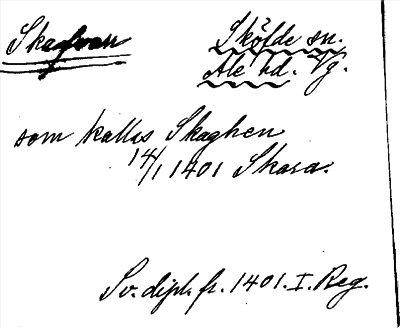 Skagvan
Skölde sn.
Ale hd. Vg.
som kallas Skaghen
14/1 1401 Skara.
Sv. dipl. fr. 1401. I. Reg.